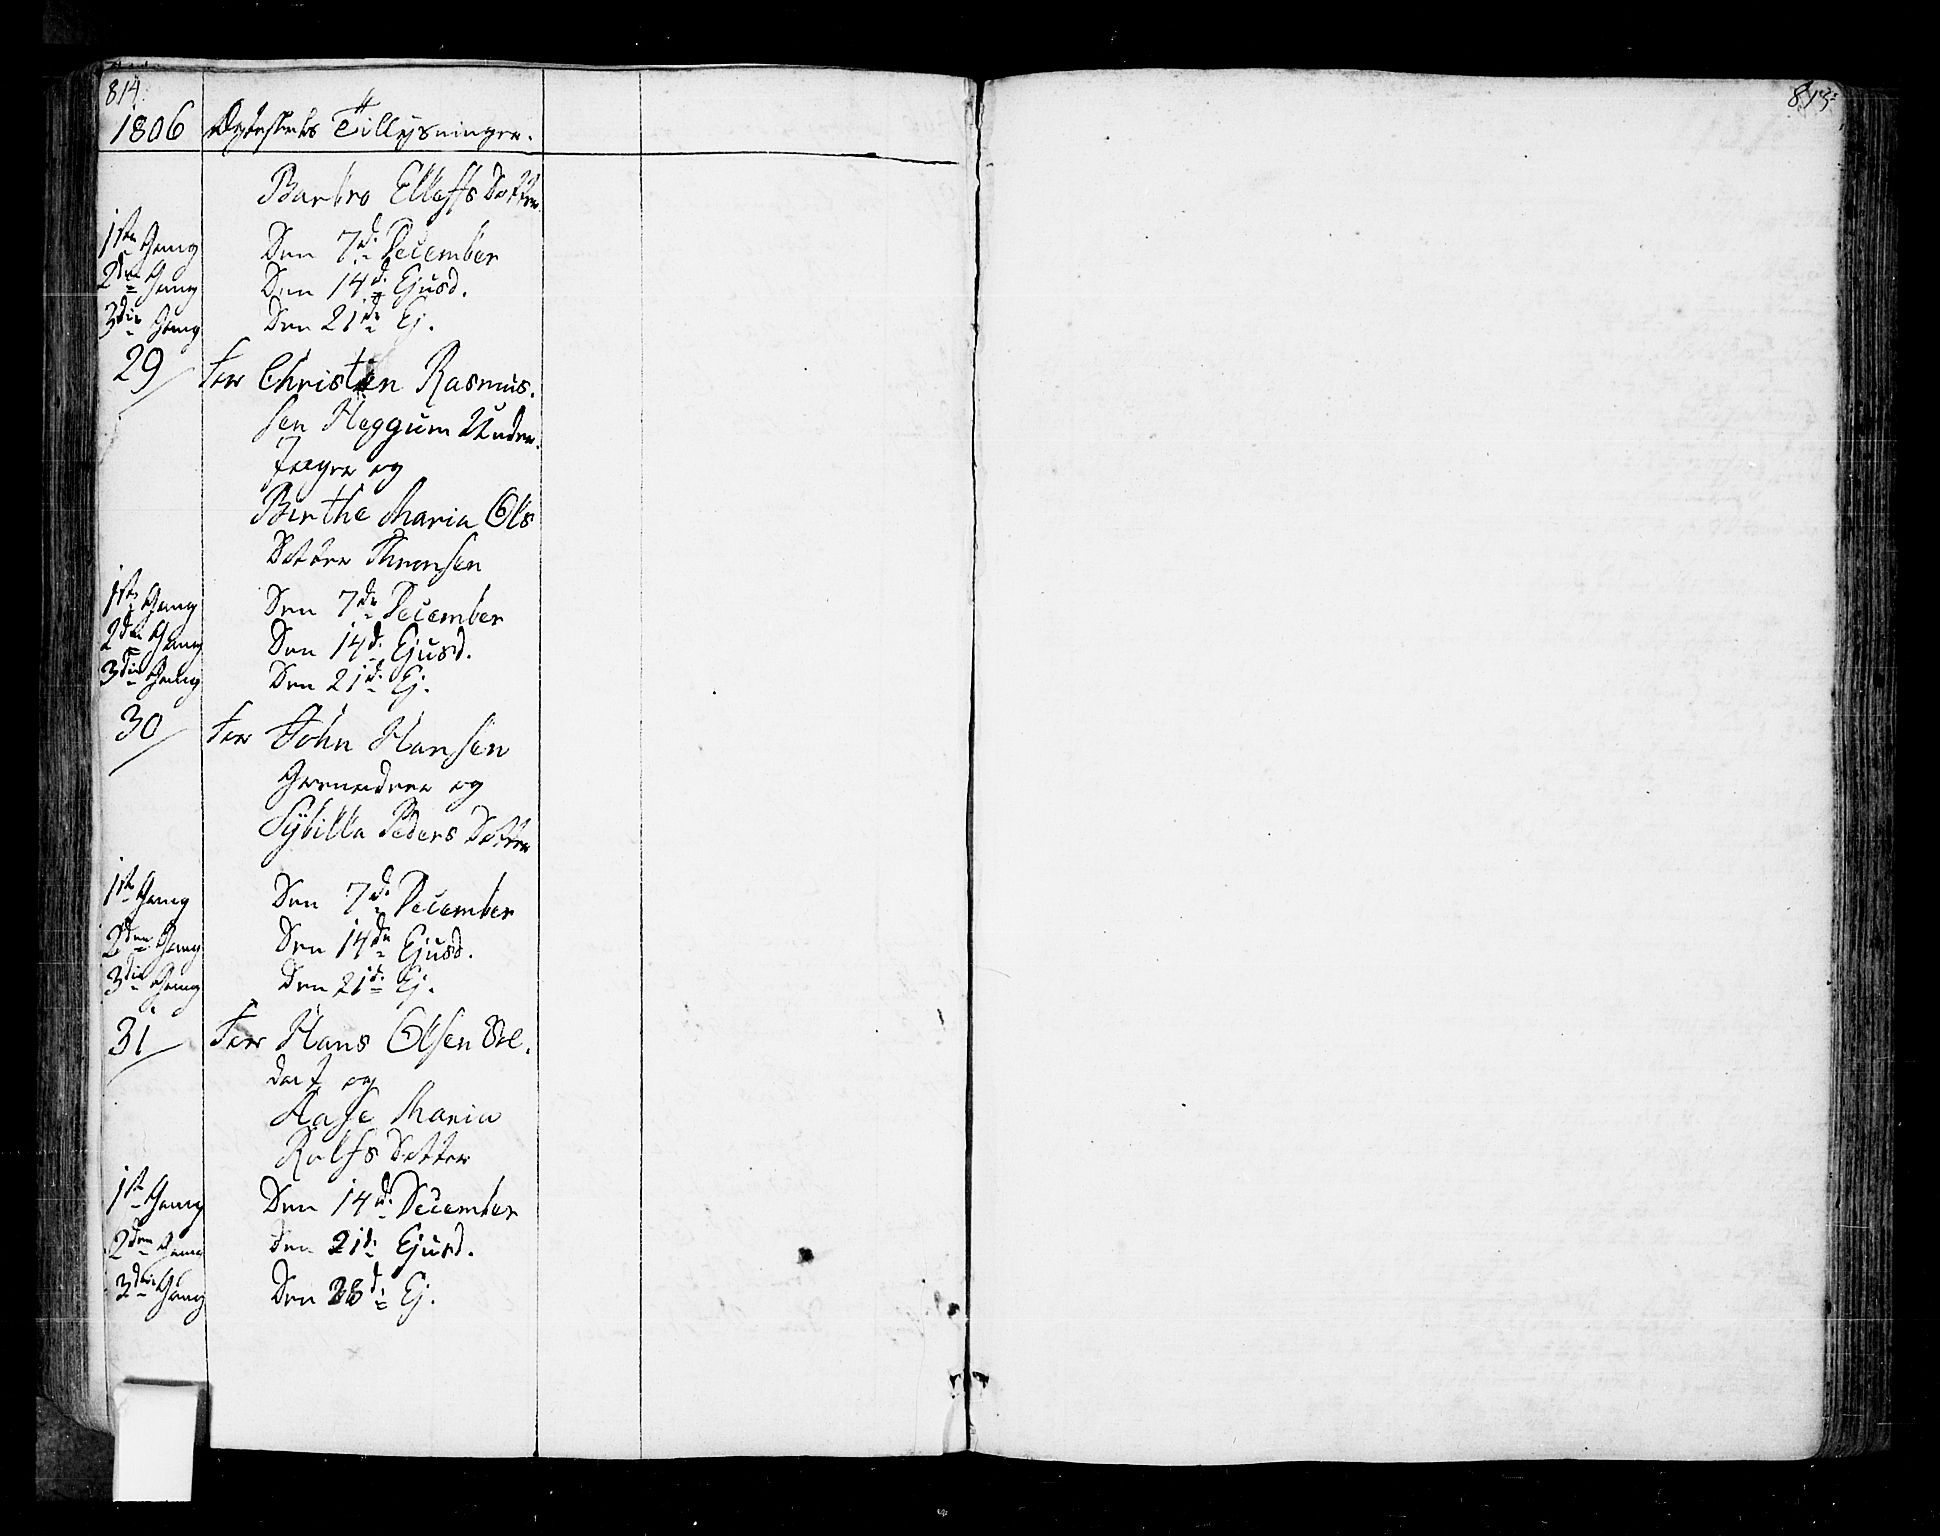 814.
1806 Ægteskabs Tillysninger.
Barbro Elleffs Dotter
1ste Gang Den 7de December
2den Gang Den 14de Ejusd.
3die Gang Den 21de Ej.
29 For Christen Rasmus-
sen Heggum Under-
Jæger og
Berthe Maria Ols
Dotter Thronsen
1ste Gang Den 7de December
2den Gang Den 14d. Ejusd.
3die Gang Den 21d. Ej.
30 For John Hansen
Grenadeer og
Sybilla Peders Dotter
1ste Gang Den 7de December
2den Gang Den 14de Ejusd.
3die Gang Den 21d. Ej.
31 For Hans Olsen Sol-
dat og
Aase Maria
Rolfs Dotter
1ste Gang Den 14d. December
2den Gang Den 21de Ejusd.
3die Gang Den 28d. Ej.
815.